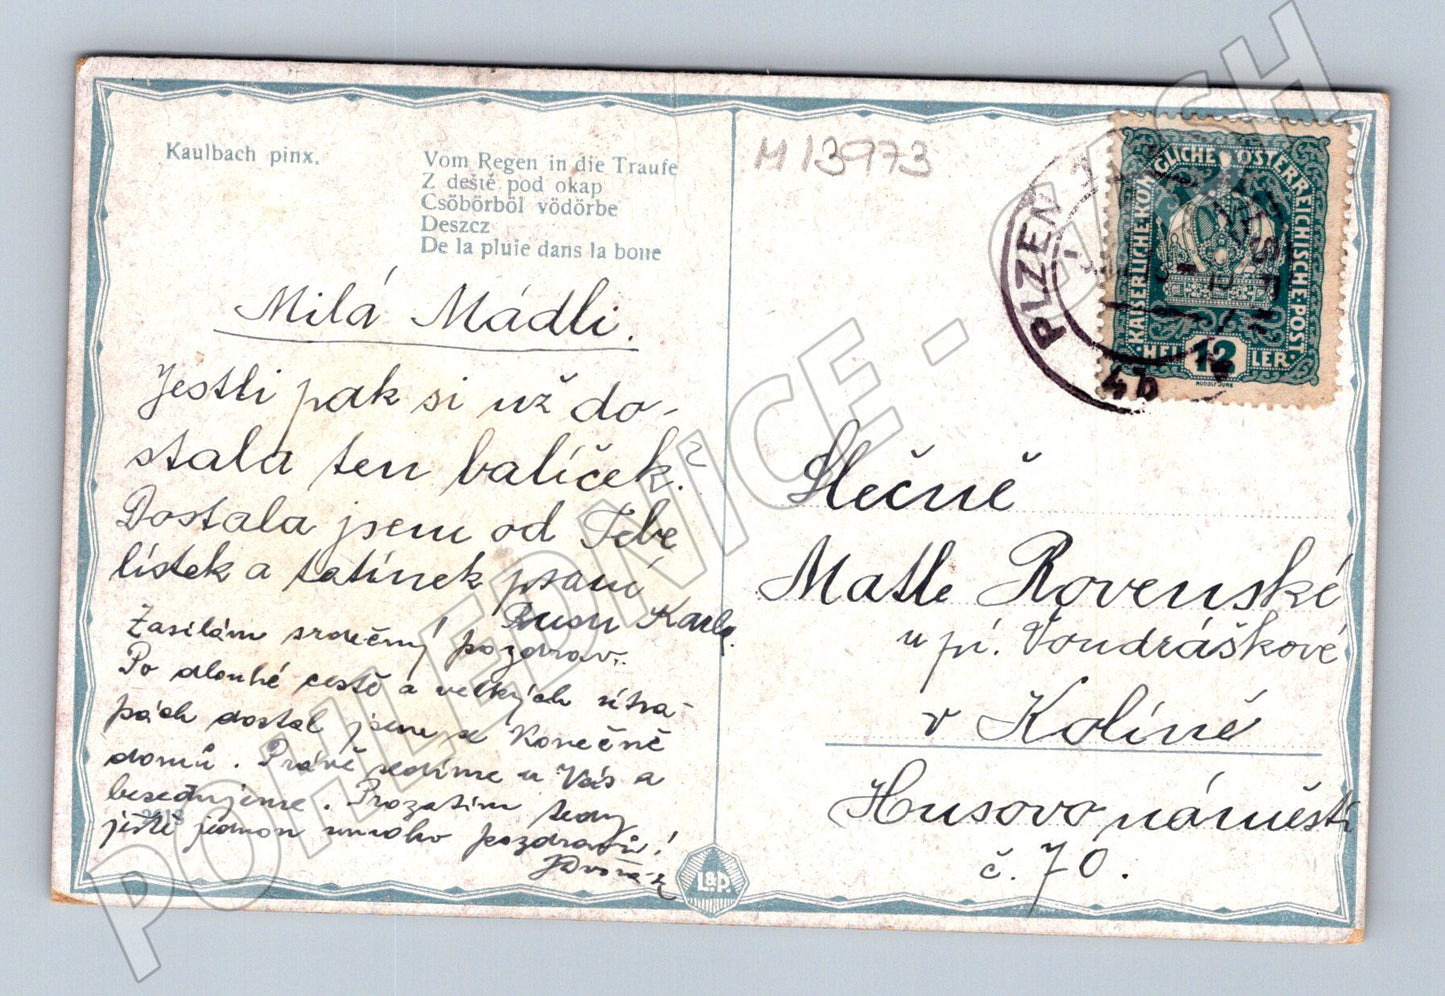 Kaulbach pinx.
Vom Regen in die Traufe
Z deště pod okap
Csöbörböl vödörbe
Deszcz
De la pluie dans la boue
M 13973
Milá Mádli.
Jestli pak si už do-
stala ten balíček?
Dostala jsem od Tebe
lístek a tatínek psaní
Karla.
Zasílám srdečný pozdrav.
Po dlouhé cestě a velkých útra-
pách dostal jsem se konečně
domů. Právě sedíme u Vás a
besedujeme. Prozatím tedy
ještě jednou mnoho pozdravů!
JDvořák
L&P.
PLZEN
4b
KAISERLICHE KÖNIGLICHE ÖSTERREICHISCHE POST
HEL 12 LER
RUDOLF JUNK
Slečně
Matle Rovenské
u pí. Vondráškové
v Kolíně
Husovo náměstí
č. 70.
POHLEDNICE - CASH